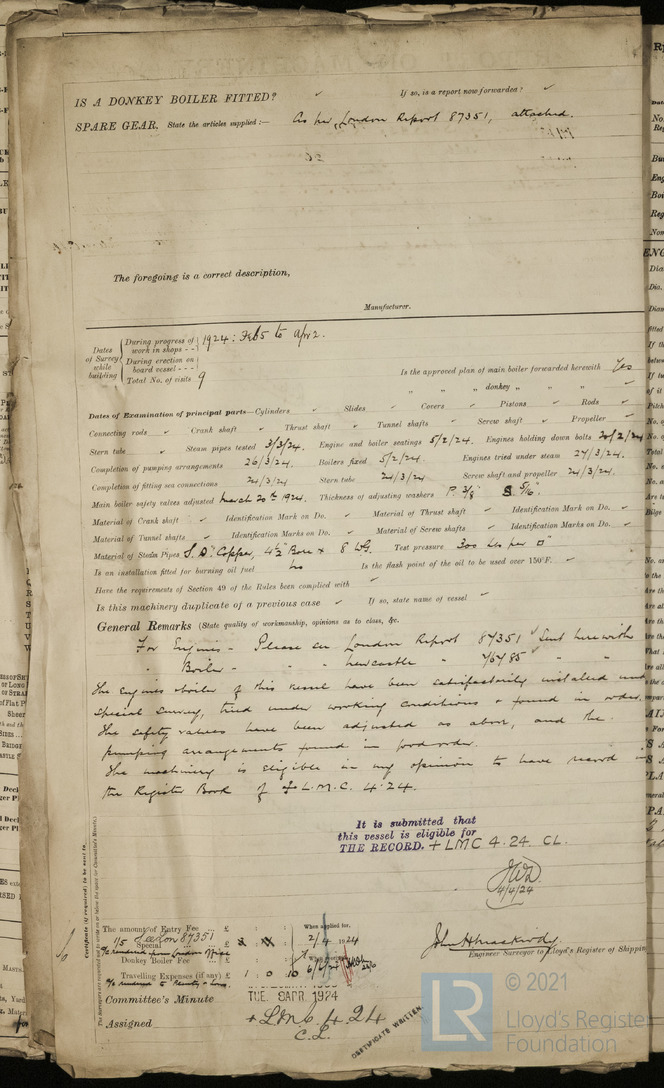 IS A DONKEY BOILER FITTED? ✓ If so, is a report now forwarded? ✓
SPARE GEAR. State the articles supplied:— As per London Report 87351, attached.
The foregoing is a correct description,
Manufacturer.
Dates of Survey while building
During progress of work in shops - - 1924: Feb 5 to Apr 2.
During erection on board vessel - - -
Total No. of visits 9
Is the approved plan of main boiler forwarded herewith Yes
" " " donkey " " " ✓
Dates of Examination of principal parts—Cylinders ✓ Slides ✓ Covers ✓ Pistons ✓ Rods ✓
Connecting rods ✓ Crank shaft ✓ Thrust shaft ✓ Tunnel shafts ✓ Screw shaft ✓ Propeller ✓
Stern tube ✓ Steam pipes tested 3/3/24. Engine and boiler seatings 5/2/24. Engines holding down bolts 20/2/24
Completion of pumping arrangements 26/3/24. Boilers fixed 5/2/24. Engines tried under steam 27/3/24.
Completion of fitting sea connections 24/3/24 Stern tube 24/3/24 Screw shaft and propeller 24/3/24.
Main boiler safety valves adjusted March 20th 1924. Thickness of adjusting washers P. 3/8" S. 5/16".
Material of Crank shaft ✓ Identification Mark on Do. ✓ Material of Thrust shaft ✓ Identification Mark on Do. ✓
Material of Tunnel shafts ✓ Identification Marks on Do. ✓ Material of Screw shafts ✓ Identification Marks on Do. ✓
Material of Steam Pipes S.D. Copper, 4½" Bore x 8 WG. Test pressure 300 lbs per □"
Is an installation fitted for burning oil fuel no Is the flash point of the oil to be used over 150°F. ✓
Have the requirements of Section 49 of the Rules been complied with ✓
Is this machinery duplicate of a previous case ✓ If so, state name of vessel ✓
General Remarks (State quality of workmanship, opinions as to class, &c.
For Engines - Please see London Report 87351 ✓ Sent herewith
" Boiler - " " Newcastle "
The Engines & boiler of this vessel have been satisfactorily installed under
special survey, tried under working conditions & found in order.
The safety valves have been adjusted as above, and the
pumping arrangements found in good order.
The machinery is eligible in my opinion to have record in
the Register Book of + L.M.C. 4.24.
It is submitted that
this vessel is eligible for
THE RECORD. + LMC 4.24. CL.
4/4/24
Certificate (if required) to be sent to
The amount of Entry Fee ... £
1/5 Special ... £
Donkey Boiler Fee ... £
Travelling Expenses (if any) £ 1 : 0 : 10
When applied for,
2/4 1924
When received,
Engineer Surveyor to Lloyd's Register of Shipping
Committee's Minute TUE. 8 APR. 1924
Assigned + LMC 4.24
C.L.
CERTIFICATE WRITTEN.
© 2021
LR
Lloyd's Register
Foundation